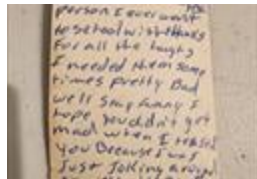 person I ever went
to school with thanks
For all the laughs
I needed them some
times pretty Bad
well stay funny I
hope you didn't get
mad when I teased
you Because I was
Just Joking around